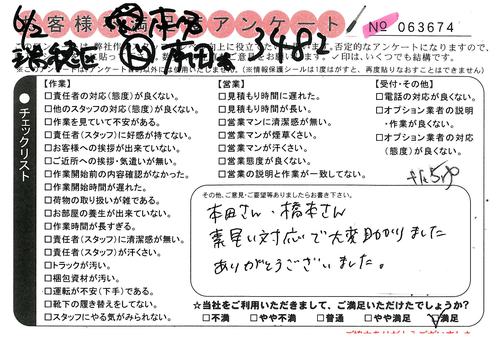 お客様満足度アンケート
No 063674
6/2
3482
※このアンケートは
(※情報保護シールは1度がすと、再度貼りなおすことはできません)
チェックリスト
【作業】
□責任者の対応(態度)が良くない。
□他のスタッフの対応(態度)が良くない。
□作業を見ていて不安がある。
□責任者(スタッフ)に好感が持てない。
□お客様への挨拶が出来ていない。
□ご近所への挨拶・気遣いが無い。
□作業開始前の内容確認がなかった。
□作業開始時間が遅れた。
□荷物の取り扱いが雑である。
□お部屋の養生が出来ていない。
□作業時間が長すぎる。
□責任者(スタッフ)に清潔感が無い。
□責任者(スタッフ)が汗くさい。
□トラックが汚い。
□梱包資材が汚い。
□運転が不安(下手)である。
□靴下の履き替えをしてない。
□スタッフにやる気がみられない。
【営業】
□見積もり時間に遅れた。
□見積もり時間が長い。
□営業マンに清潔感が無い。
□営業マンが煙草くさい。
□営業マンが汗くさい。
□営業態度が良くない。
□営業の説明と作業が一致してない。
【受付・その他】
□電話の対応が良くない。
□オプション業者の説明
・作業が良くない。
□オプション業者の対応
(態度)が良くない。
その他、ご意見・ご要望等ありましたらお書き下さい。
本田さん・橋本さん
素早い対応で大変助かりました
ありがとうございました。
☆当社をご利用いただきまして、ご満足いただけたでしょうか?
□不満 □やや不満 □普通 □やや満足 □満足